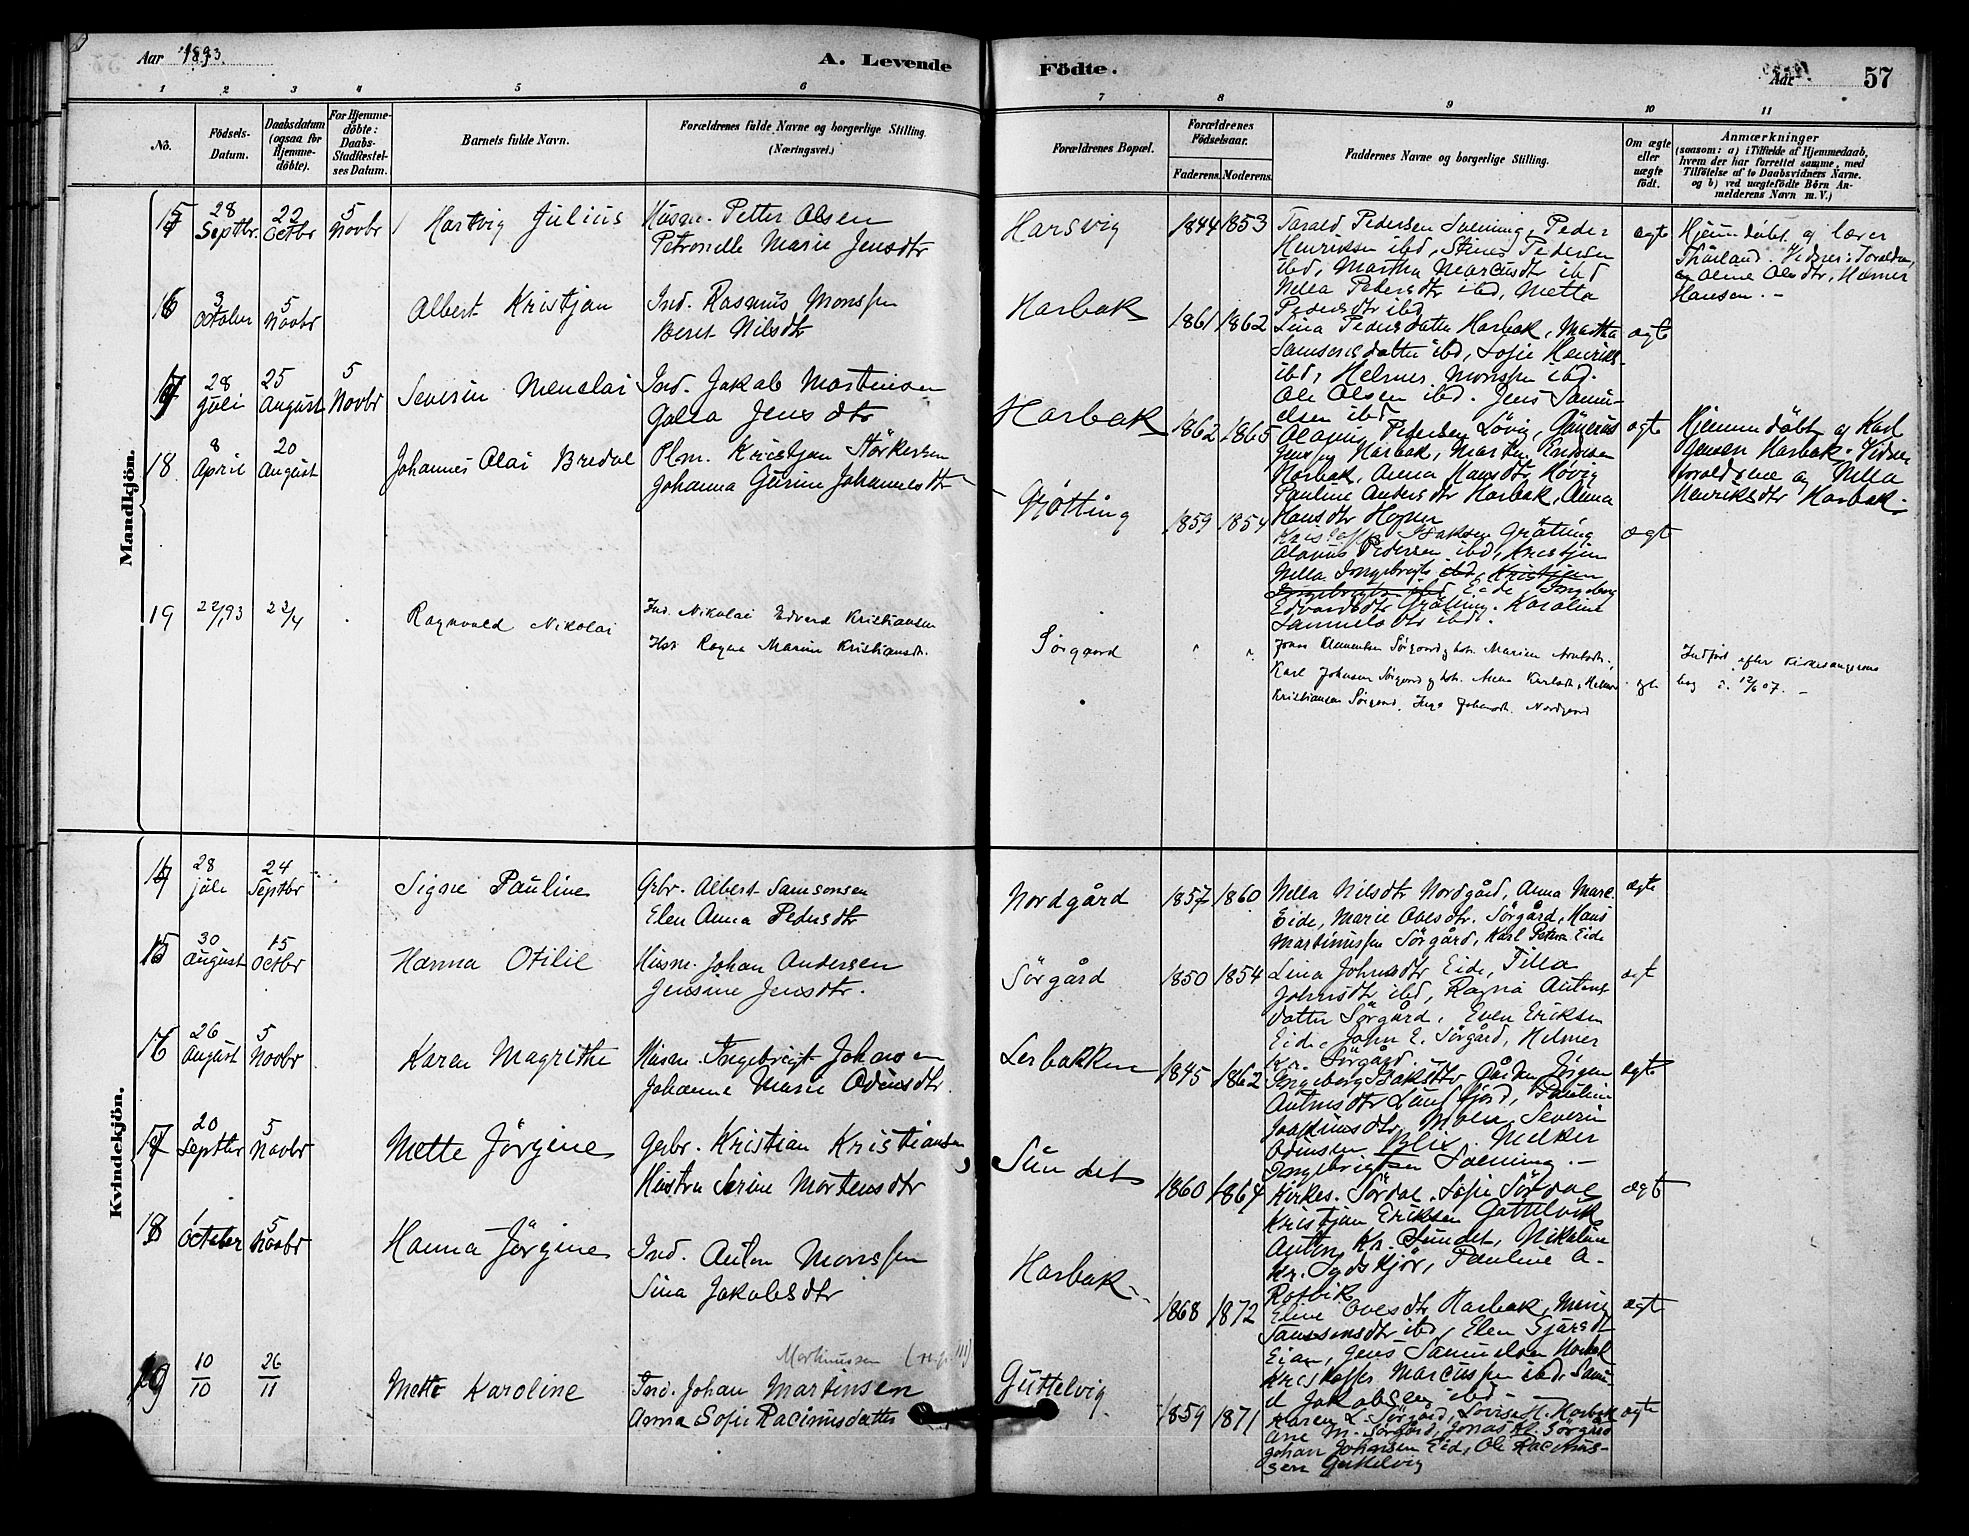 Aar 1893.
A. Levende
Födte.
Aar
57
1 2 3 4 5 6
7 8 9 10 11
No.
Födsels-
Datum.
Daabsdatum
(ogsaa for
Hjemme-
döbte).
For Hjemme-
döbte:
Daabs-
Stadfæstel-
ses Datum.
Barnets fulde Navn.
Forældrenes fulde Navne og borgerlige Stilling.
(Næringsvei.)
Forældrenes Bopæl.
Forældrenes
Födselsaar.
Faderens. Moderens.
Faddernes Navne og borgerlige Stilling.
Om ægte
eller
uægte
födt.
Anmærkninger
(saasom: a) i Tilfælde af Hjemmedaab,
hvem der har forrettet samme, med
Tilföielse af to Daabsvidners Navne.
og b) ved uægtefödte Börn An-
melderens Navn m.V.)
Mandkjön.
15
28 Septbr.
22 Octbr
5 Novbr
Hartvig Julius
Husm. Petter Olsen
Petronelle Marie Jensdtr
Harsvig
1844 1853
Tarald Pedersen Sætning, Peder
Henriksen ibd, Stines Pedersen
ibd, Martha Marcusdtr ibd
Nella Pedersdtr ibd, Metta
Pedersdtr ibd
ægte
Hjemmedöbt af lærer
Vidner: Foraldre
og Oline Olsdtr, Helmer
Hansen. -
16
3 October
5 Novbr
Albert Kristjan
Ind. Rasmus Monsen
Beret Nilsdtr
Harbak
1861 1862
Lina Pedersdatter Harbak, Martha
Samsonsdatter ibd, Sofie Henriks
ibd, Helmer Monsen ibd.
Ole Olsen ibd. Jens Samu-
elsen ibd
ægte
17
28 Juli
25 August
5 Novbr
Severin Menelai
Ind. Jakob Martinsen
Golla Jensdtr
Harbak
1862 1865
Olaus Pedersen Lövig,
Jensen Harbak, Martin
Harbak, Anna Hansdtr Hövig
Pauline Andersdtr Harbak, Anna
Hansdtr Hopen
ægte
Hjemmedöbt af Karl
Jensen Harbak. Vidner
foraldrene og Nella
Henriksdtr Harbak.
18
8 April
20 August
Johannes Olai Bredal
Plm. Kristjan Störkersen
Johanna Gurine Johannesdtr
Gjötting
1859 1854
Kristoffer Isaksen Gråtting
Olaus Pedersen ibd, Kristjan
Nella Ingebrigts ibd, Kristjan
Ingebrigts ibd Eide Ingeborg
Edvardsdtr Gråtting. Karoline
Samuelsdtr ibd.
ægte
19
22/1 93
22/4
Ragnvald Nikolai
Ind. Nikolai Edvard Kristiansen
Hst. Ragna Marine Kristiansdtr.
Sörgaard
" "
Jonas Klementsen Sörgaard og hst. Marien Arntsdtr.,
Karl Johnsen Sörgaard og hst. Anna Karlsdtr, Helmer
Kristiansen Sörgaard, Inga Johansdtr. Nordgaard
ægte
Indfört efter Kirkesangerens
bog d. 12/6 07. -
Kvindekjön.
14
28 juli
24 Septbr
Signe Pauline
Grbr. Albert Samsonsen
Elen Anna Pedersdtr
Nordgård
1857 1860
Nella Nilsdtr Nordgård, Anna Mare
Eide, Marie Ovesdtr. Sörgård, Hans
Martinussen Sörgård, Karl Petersen Eide
ægte
15
30 August
15 Octbr
Hanna Otilie
Husm. Johan Andersen
Jensine Jensdtr.
Sörgård
1850 1854
Lina Johnsdtr Eide, Tilla
Johnsdtr ibd, Ragna Antons
datter Sörgård, Even Eriksen
Eide, John E. Sörgård, Helmer
Kr. Sörgård.
ægt
16
26 August
5 Novbr
Karen Magrithe
Husm. Ingebrigt Johnsen
Johanna Marie Odinsdtr
Lerbakken
1845 1862
Ingeborg Isaksdtr
Antonsdtr Pauline
Joakimsdtr Moen, Severin
Odinsen Blix. Melker
Ingebrigtsen Sætning. -
ægte
17
20 Septbr
5 Novbr
Mette Jörgine
Grbr. Kristian Kristiansen
Hustru Serine Mortensdtr
Sundet
1860 1864
Kirkes. Sördal. Sofie Sördal
Kristjan Eriksen Guttelvik
Anton Kr. Sundet, Nikoline
Kr. Sydskjör, Pauline A.
Rotvik
ægt
18
1 October
5 Novbr
Hanna Jörgine
Ind. Anton Monsen
Sina Jakobsdtr
Harbak
1868 1872
Eline Ovesdtr Harbak, Mine
Samsonsdtr ibd, Elen Sjursdtr
Eian, Jens Samuelsen Harbak
Kristoffer Marcussen ibd, Samu-
el Jakobsen ibd
ægte
19
10/10
26/11
Mette Karoline
Martinussen
Ind. Johan Martinsen
Anna Sofie Racinusdatter
Guttelvig
1859 1871
Karen L. Sörgård, Lovise H. Harbak
Ane M. Sörgård, Jonas Kl. Sörgård
Johan Johansen Eid, Ole Racinus-
sen Guttelvig
ægte